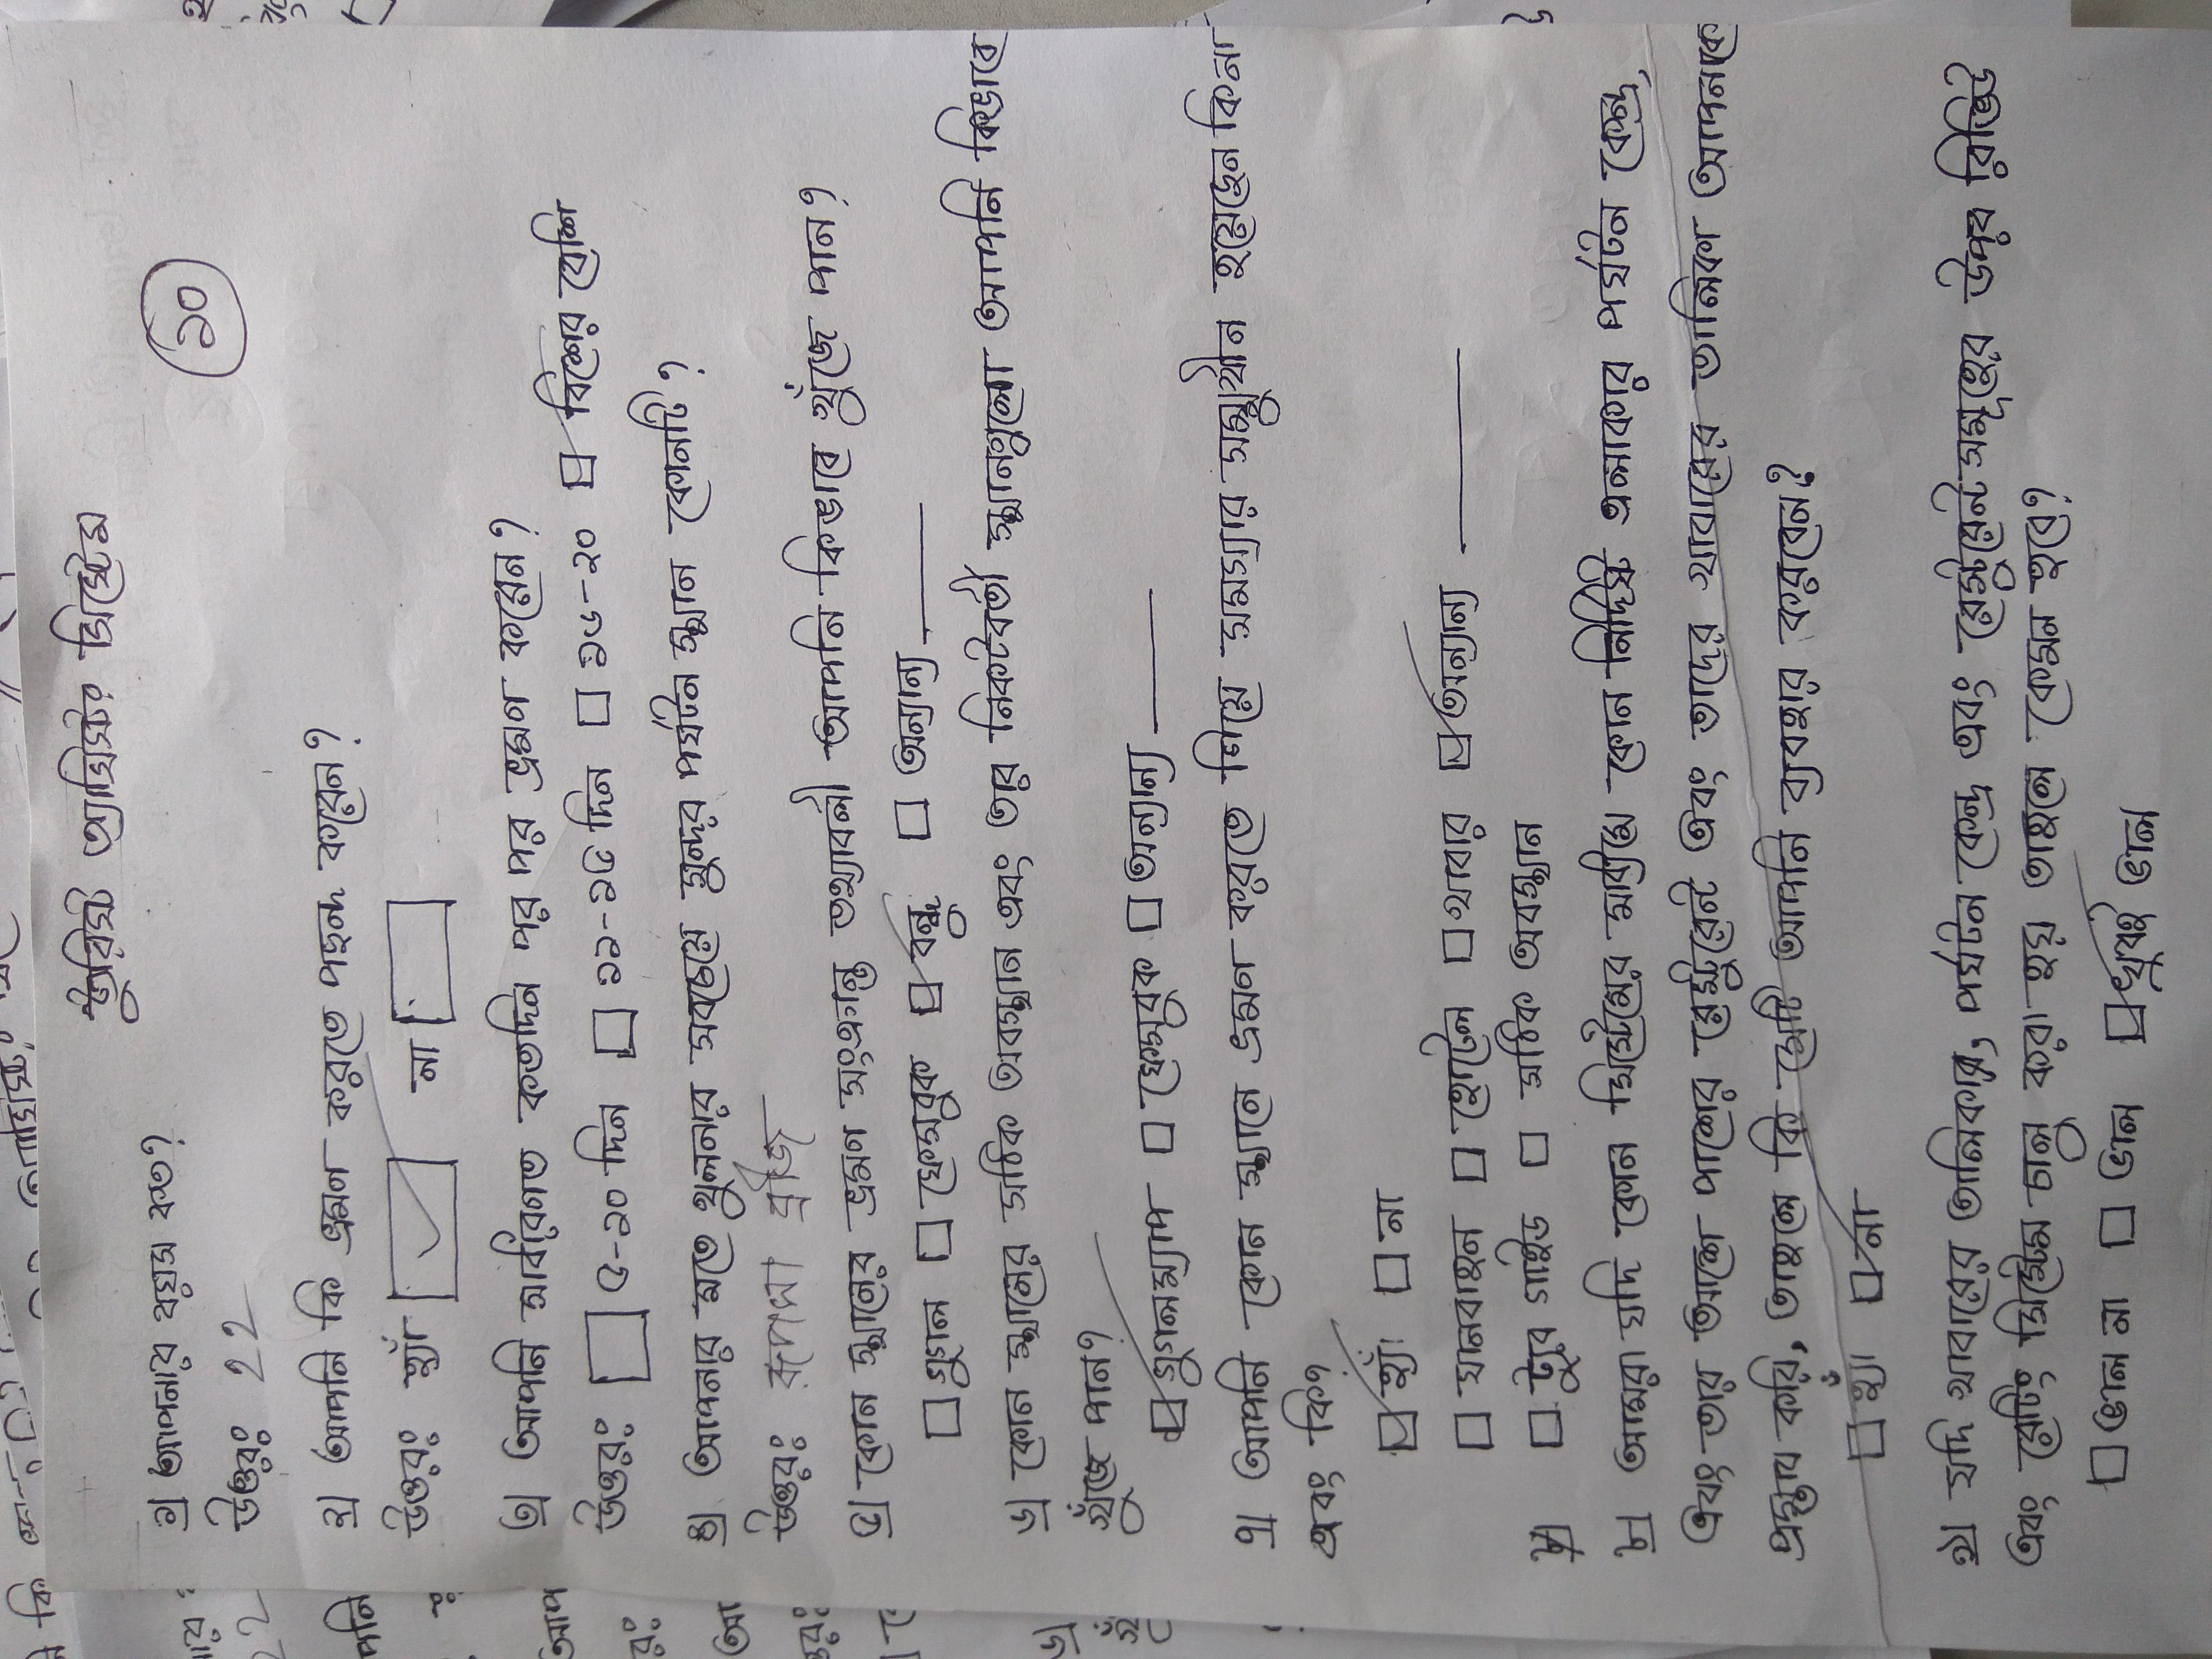 ট্যুরিস্ট অ্যাসিস্টিং সিস্টেম
১০
১| আপনার বয়স কত?
উত্তরঃ 22
২| আপনি কি ভ্রমণ করতে পছন্দ করেন?
উত্তরঃ হ্যাঁ না
৩| আপনি সাধারণত কতদিন পর পর ভ্রমণ করেন?
উত্তরঃ ৫-১০ দিন ১১-১৫ দিন ১৬-২০ বিশের বেশি
৪| আপনার মতে খুলনার সবচেয়ে সুন্দর পর্যটন স্থান কোনটি?
উত্তরঃ রূপসা ব্রীজ
৫| কোন স্থানের ভ্রমণ সংক্রান্ত তথ্যাবলী আপনি কিভাবে খুঁজে পান?
গুগল ফেসবুক বন্ধু অন্যান্য
৬| কোন স্থানের সঠিক অবস্থান এবং তার নিকটবর্তী স্থানগুলো আপনি কিভাবে
খুঁজে পান?
গুগলম্যাপ ফেসবুক অন্যান্য
৭| আপনি কোন স্থানে ভ্রমণ করতে গিয়ে সমস্যার সম্মুখীন হয়েছেন কিনা
এবং কি?
হ্যাঁ না
যানবাহন হোটেল খাবার অন্যান্য
ট্যুর গাইড সঠিক অবস্থান
৮| আমরা যদি কোন সিস্টেমের মাধ্যমে কোন নির্দিষ্ট এলাকার পর্যটন কেন্দ্র,
এবং তার আশে পাশের রেস্টুরেন্ট এবং তাদের খাবারের তালিকা আপনাকে
প্রস্তাব করি, তাহলে কি সেটি আপনি ব্যবহার করবেন?
হ্যাঁ না
৯| যদি খাবারের তালিকায়, পর্যটন কেন্দ্র এবং রেস্টুরেন্ট সমূহের উপর রিভিউ
এবং রেটিং সিস্টেম চালু করা হয় তাহলে কেমন হবে?
ভাল না ভাল খুবই ভাল